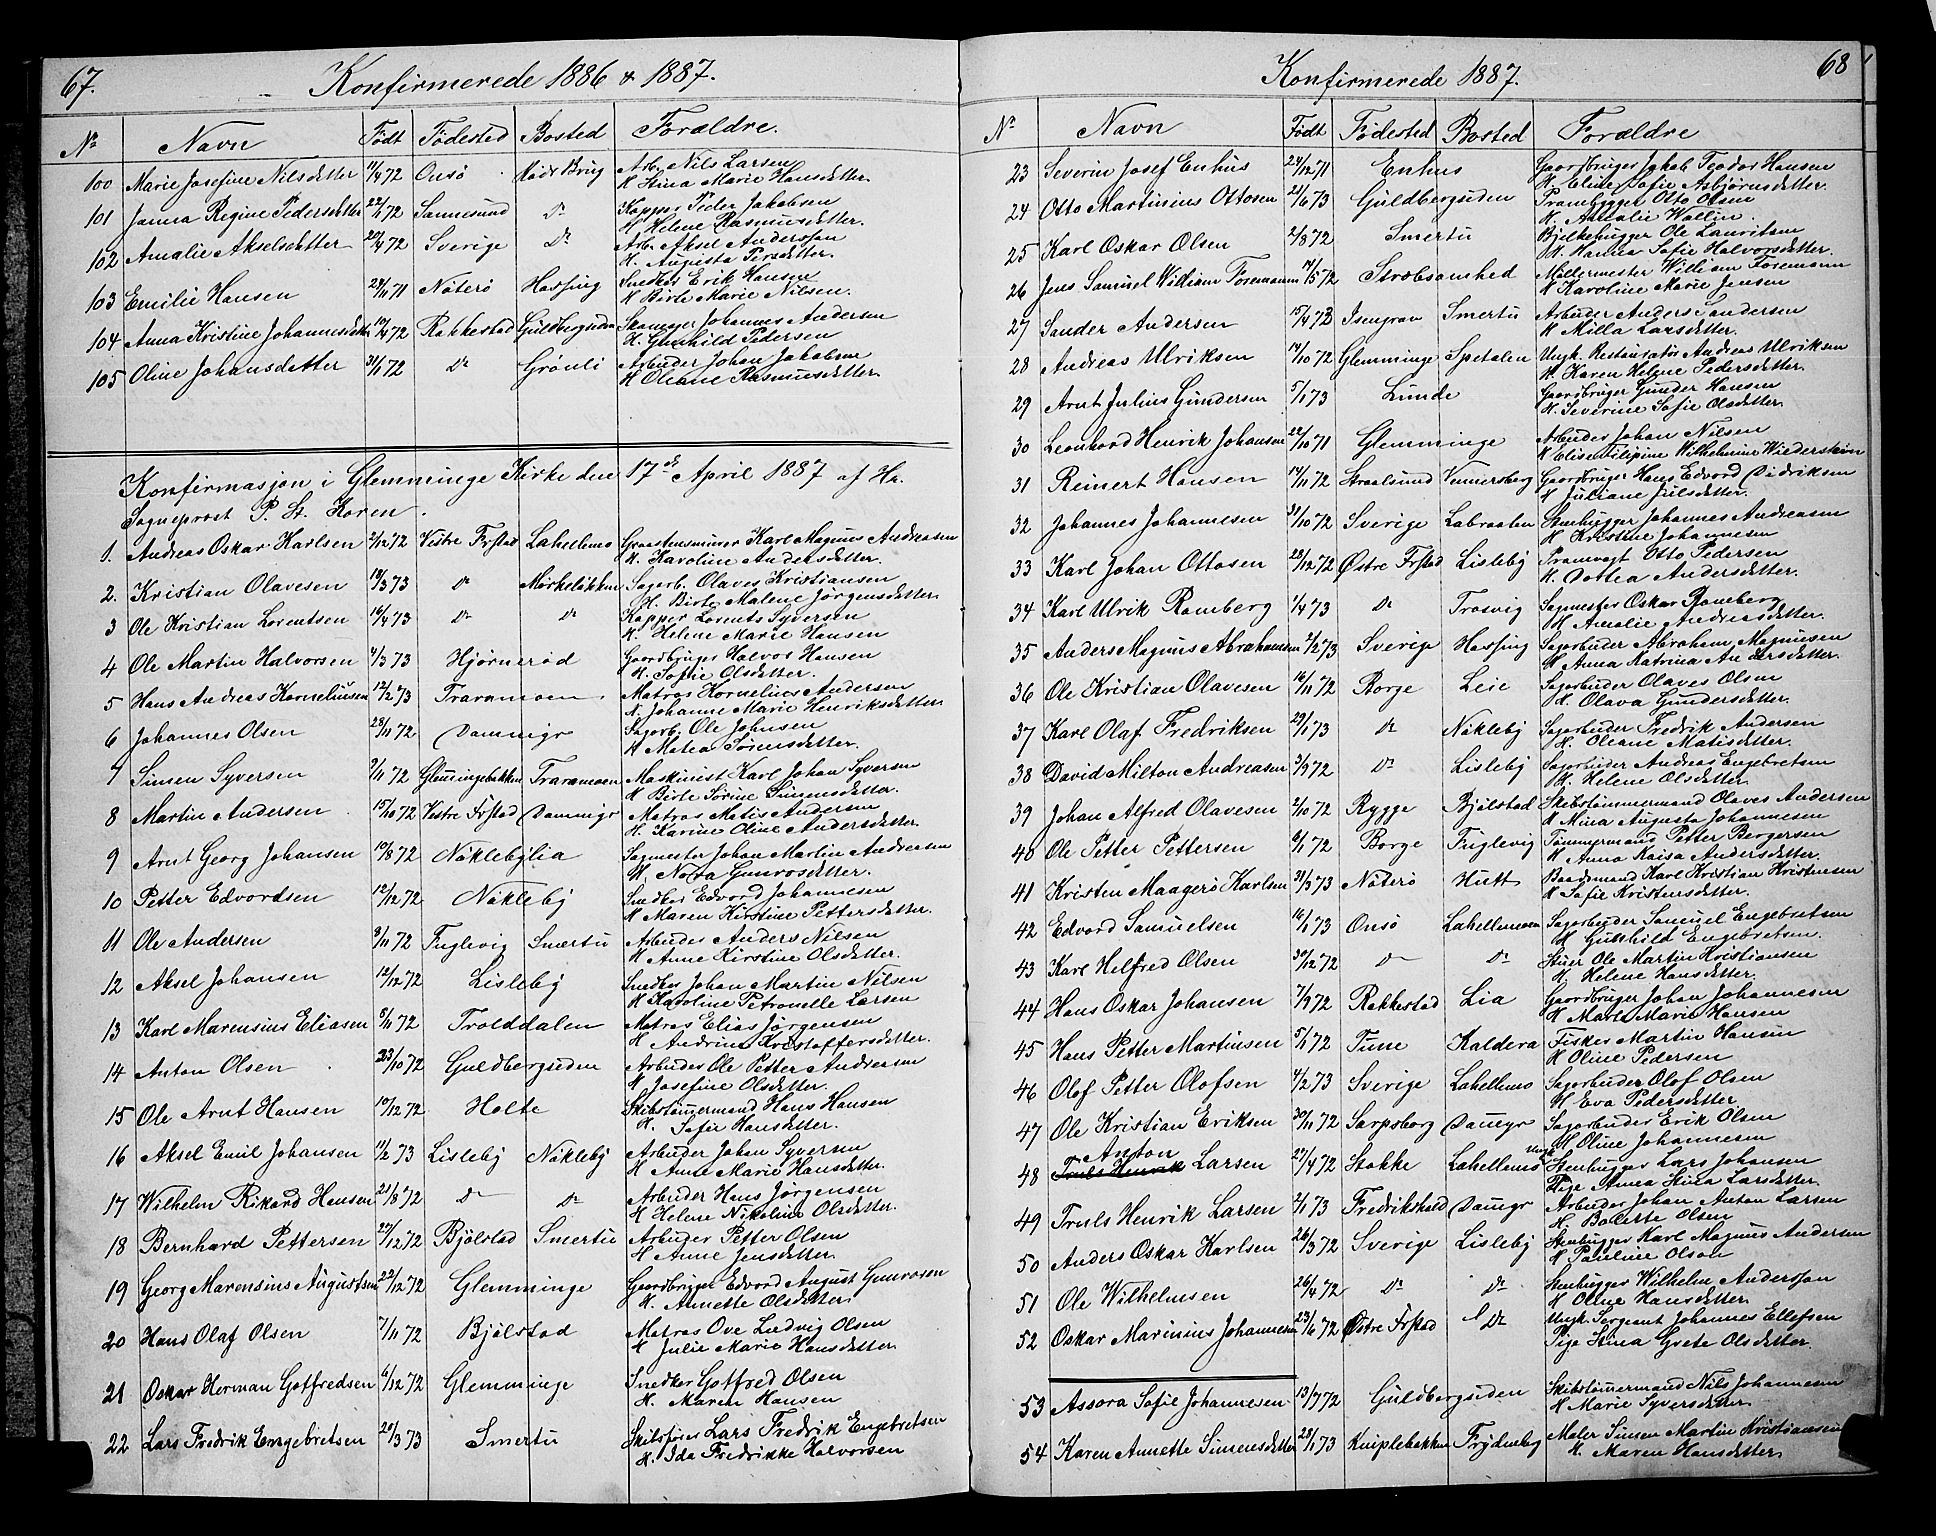 67.
Konfirmerede 1886 & 1887.
No Navn Født Fødested Bosted Forældre.
100 Marie Josefine Nilsdatter 11/4 72 Onsø Brug Arb. Nils Larsen
H Stina Marie Hansdatter
101 Janna Regine Pedersdatter 22/1 72 Sannesund Do Kapper Peder Jakobsen
H Helene Rasmusdatter.
102 Amalie Akselsdatter 20/4 72 Sverige Do Arb. Aksel Anderssen
H. Augusta
103 Emilie Hansen 29/11 71 Nøterø Hassing Snedker Erik Hansen
H Birte Marie Nilsen.
104 Anna Kristine Johannesdatter 10/4 72 Rakkestad Guldbergsuden Johannes Andersen
H. Gunhild Pedersen
105 Oline Johansdatter 31/1 72 Do Grönli Arbeider Johan Jakobsen
H Oleane Rasmusdatter.
Konfirmasjon i Glemminge Kirke den 17de April 1887 af Hr.
Sogneprost P. St. Koren.
1. Andreas Oskar Karlsen 2/12 72 Vestre Frstad Lahellemo Graastensminer Karl Magnus Andreasen
H. Karoline Andersdatter.
2. Kristian Olavesen 19/3 73 Do Mørkeløkken Sagarb. Olaves Kristiansen
H. Birte Malene Jørgensdatter.
3 Ole Kristian Lorentsen 16/4 73 Do Do Kapper Lorents Syversen
H. Helene Marie Hansen
4 Ole Martin Halvorsen 4/3 73 Hjørnerød Gaardbruger Halvor Hansen
H. Sofie Olsdatter.
5 Hans Andreas Kornelius​sen 12/2 73 Traramoen. Matros Kornelius Andersen
H. Johanne Marie Henriksdatter
6 Johannes Olsen 28/11 72 Dammigr Sagarb. Ole Johnsen
H Matea Sørensdatter.
7 Simen Syversen 9/11 72 Glemmingebakken Traramoen Maskinist Karl Johan Syversen
H Birte Sørine Simensdatter.
8 Martin Andersen 15/10 72 Vestre Frstad Dammigr Matros Matis Andersen
H. Karine Oline Andersdatter.
9 Arnt Georg Johansen 10/8 72 Nöklebylia Sagmester Johan Martin Andersen
H. Nora Gunrosdatter.
10 Petter Edvordsen 12/12 72 Nökleby Snedker Edvard Johannesen
H Maren Kirstine Pettersdatter.
11 Ole Andersen 8/11 72 Fuglevig Smertu Arbeider Anders Nilsen
H Anne Kirstine Olsdatter.
12 Aksel Johansen 12/12 72 Lisleby Snedker Johan Martin Nilsen
H Karoline Petronelle Larsen
13 Karl Marensius Eliasen 8/11 72 Trolddalen Matros Elias Jørgensen
H Andrine Kristoffersdatter.
14 Anton Olsen 23/10 72 Guldbergsuden Arbeider Ole Petter Andersen
H Josefine Olsdatter.
15 Ole Arnt Hansen 10/12 72 Holte Skibstømmermand Hans Hansen
H. Sofie Hansdatter.
16 Aksel Emil Johansen 11/2 73 Lisleby Nökleby Arbeider Johan Syversen
H Anne Marie Hansdatter.
17 Wilhelm Rikard Hansen 21/8 72 Do Do Arbeider Hans Jørgensen
H Helene Nikoline Olsdatter.
18 Bernhard Pettersen 27/12 72 Bjölstad Smertu Arbeider Petter Olsen
H Anne Jensdatter.
19 Georg Marensius Augustsen 22/12 72 Glemminge Gaardbruger Edvard August Gunrosen
H. Annette Olsdatter.
20 Hans Olaf Olsen 7/11 72 Bjölstad Matros Ove Ludvig Olsen
H Julie Marie Hansdatter.
21 Oskar Herman Gotfredsen 6/12 72 Glemminge Snedker Gotfred Olsen
H. Maren Hansen
22 Lars Fredrik Engebretsen 20/3 73 Smertu Skibsfører Lars Fredrik Engebretsen
H. Ida Fredrikke Halvorsen
Konfirmerede 1887.
68
No Navn Født Fødested Bosted Forældre
23 Severin Josef Enhus 24/12 71 Enhus Gaardbruger Jakob Teodor Hansen
H. Eline Sofie Asbjørnsdatter.
24 Otto Martinius Ottosen 21/6 73 Guldbergsuden Prambygger Otto Olsen
H. Amalie Wallin.
25 Karl Oskar Olsen 2/8 72 Smertu Bjelkehugger Ole Lauritsen
H. Hanna Sofie Halvorsdatter.
26 Jens Samuel William Forsmann 14/5 72 Stræbsomhed Møllermester William Forsmann
H Karoline Marie Jensen
27 Sander Andersen 15/4 72 Isengran Smertu Arbeider Anders Andersen
H Milla Larsdatter.
28 Andreas Ulriksen 14/10 72 Glemminge Spetalen Ungk. Restauratør Andreas Ulriksen
H. Karen Helene Pedersdatter.
29 Arnt Julius Gundersen 5/1 73 Lunde Gaardbruger Gunder Hansen
H. Severine Sofie Olsdatter.
30 Leonhard Henrik Johansen 22/10 71 Glemminge Arbeider Johan Nilsen
H Elise Filipine Wilhelmine Wiederstrøm
31 Reinert Hansen 14/11 72 Straalsund Vennersborg Gaardbruger Hans Edvard Didriksen
H Juliane Julsdatter.
32 Johannes Johannesen 31/10 72 Sverige Labraaten Stenhugger Johannes Andreasen
H Kristine Johannesen
33 Karl Johan Ottosen 28/12 72 Østre Frstad Lisleby Pramvogt Otto Pedersen
H. Dottea Andersdatter.
34 Karl Ulrik Ramberg 1/4 73 Do Trosvig Sagmester Oskar Ramberg
H Amalie Andreasdatter.
35 Anders Magnus Abrahamsen 2/2 73 Sverige Hassing Sagarbeider Abraham Magnusen
H Anna Katrina Andersdatter.
36 Ole Kristian Olavesen 16/11 72 Borge Leie Sagarbeider Olaves Olsen
H. Olava Gundersdatter.
37 Karl Olaf Fredriksen 29/1 73 Do Nökleby Sagarbeider Fredrik Andersen
H. Oleane Matisdatter.
38 David Milton Andreasen 3/9 72 Do Lisleby Sagarbeider Andreas Engebretsen
H. Helene Olsdatter.
39 Johan Alfred Olavesen 2/10 72 Rygge Bjölstad Skibstømmermand Olaves Andersen
H Mina Augusta Johannesen
40 Ole Petter Pettersen 6/1 72 Borge Fuglevig Tømmermand Petter Bergersen
H Anna Kaisa Andersdatter.
41 Kristen Maagerö Karlsen 31/3 73 Nøterø Hutt Baadsmand Karl Kristian Kristensen
H Sofie Kristensdatter.
42 Edvard Samuelsen 16/1 73 Onsø Lahellemoen Sagarbeider Samuel Engebretsen
H Gunhild Engebretsen.
43 Karl Helfred Olsen 30/12 72 Do Do Stuer Ole Martin Kristiansen
H. Helene Hansdatter.
44 Hans Oskar Johansen 7/9 72 Rakkestad Lia Gaardbruger Johan Johannesen
H Marte Marie Hansen
45 Hans Petter Martinsen 5/1 72 Tune Kaldera Fisker Martin Hansen
H Oline Pedersen
46 Olof Petter Olofsen 4/2 73 Sverige Lahellemo Sagarbeider Olof Olsen
H Eva Pedersdatter
47 Ole Kristian Eriksen 30/11 72 Sarpsborg Damgr Sagarbeider Erik Olsen
H Oline Johannesen
48 Anton Truls Henrik Larsen 27/4 72 Stokke Lahellemo Ungk. Stenhugger Lars Johansen
Pige Anna Stina Larsdatter.
49 Truls Henrik Larsen 2/1 73 Fredrikshald Damgr Arbeider Johan Anton Larsen
H. Bolerte Olsen
50 Anders Oskar Karlsen 26/3 72 Sverige Lisleby Stenhugger Karl Magnus Andersen
H Pauline Olson
51 Ole Wilhelmsen 26/4 72 Do Do Stenhugger Wilhelm Anderssen
H Oline Hansdatter.
52 Oskar Marinius Johannesen 23/6 72 Østre Frstad Do Ungk. Sergeant Johannes Ellefsen
Pige Stina Grete Olsdatter.
53 Assora Sofie Johannesen 13/9 72 Guldbergsuden Skibstømmermand Nils Johannesen
H Marie Syversdatter.
54 Karen Annette Simensdatter 28/1 73 Kniplebakken Frydenberg Maler Simen Martin Kristiansen
H. Maren Hansdatter